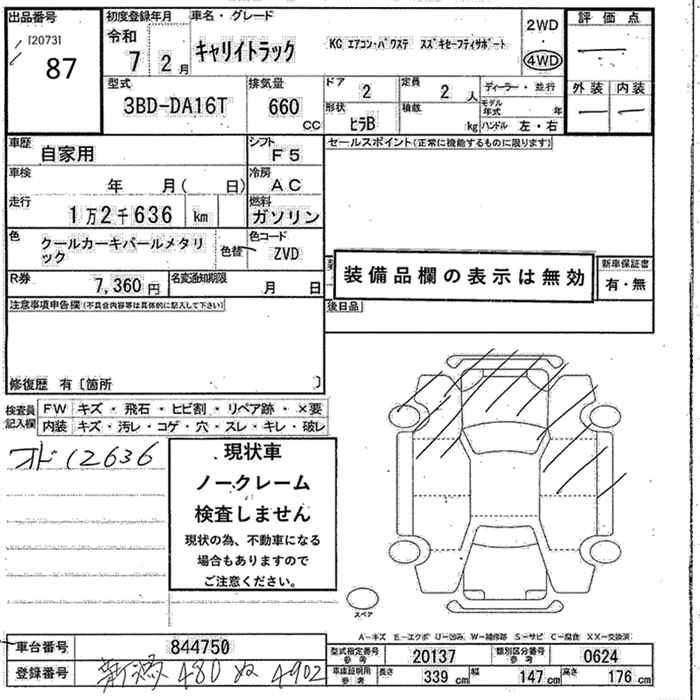 出品番号
[2073]
87
初度登録年月
令和
7 2月
車名・グレード
キャリイトラック KC エアコン・パワステ スズキセーフティサポート
2WD
4WD
評価点
外装 内装
型式
3BD-DA16T
排気量
660
CC
ドア
2
定員
2 人
ディーラー・並行
モデル年式 年
形状
ヒラB
積載
kg
ハンドル 左・右
車歴
自家用
シフト
F5
セールスポイント(正常に機能するものに限ります)
車検
年 月( 日)
冷房
AC
走行
1万2千636 km
燃料
ガソリン
色
クールカーキパールメタリ
ック
色替
色コード
ZVD
装備品欄の表示は無効
新車保証書
有・無
R券
7,360円
名変通知期限
月 日
後日品
注意事項申告欄(不具合内容等は具体的に記入して下さい)
修復歴 有〔箇所 〕
検査員
記入欄
FW キズ・飛石・ヒビ割・リペア跡・×要
内装 キズ・汚レ・コゲ・穴・スレ・キレ・破レ
オド12636
現状車
ノークレーム
検査しません
現状の為、不動車になる
場合もありますので
ご注意ください。
スペア
A-キズ E-エクボ U-凹み W-補修跡 S-サビ C-腐食 XX-交換済
車台番号
844750
型式指定番号
参考
20137
類別区分番号
参考
0624
登録番号
新潟 480 ぬ 4902
車庫証明用
参考
長さ 339 cm 幅 147 cm 高さ 176 cm